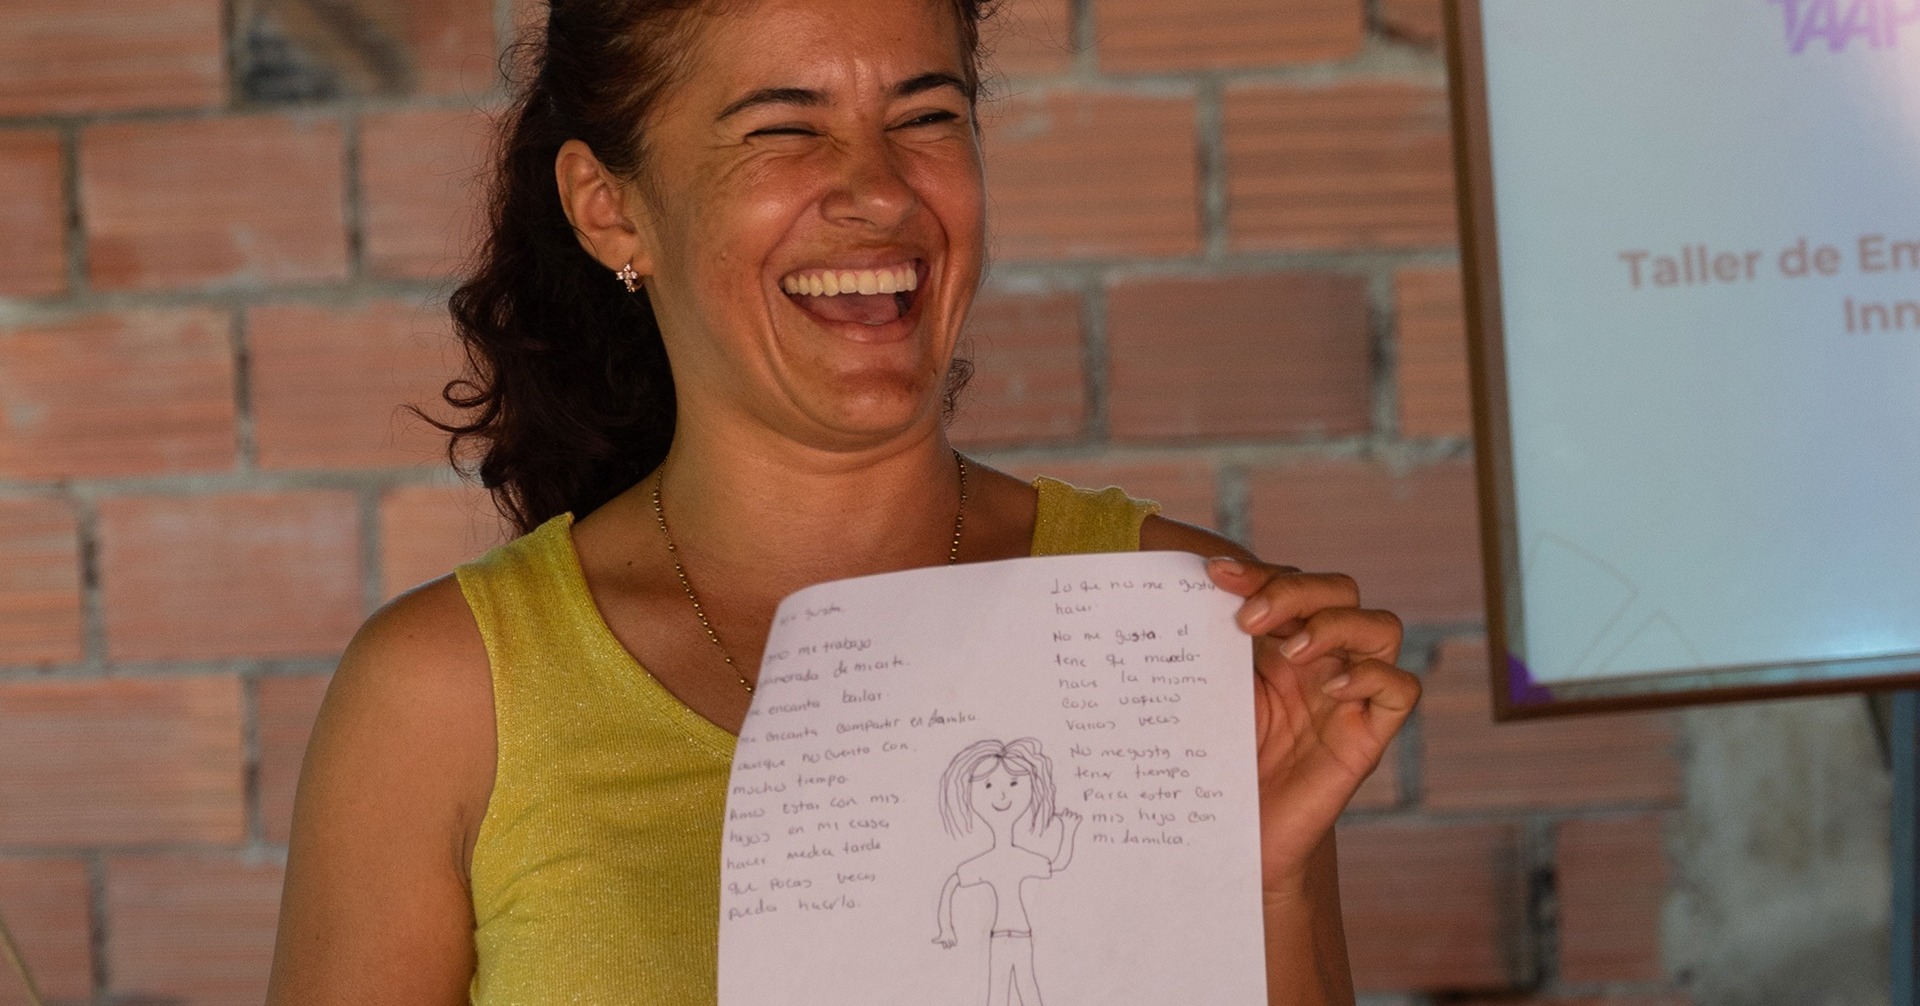 gusta
me trabajo
enamorada de mi arte.
encanta bailar
me encanta compartir en familia.
aunque no cuento con.
mucho tiempo.
Amo estar con mis.
hijos en mi casa
hacer media tarde
que pocas veces
puedo hacerlo.
Lo que no me gusta
hacer.
No me gusta. el
tene que
hacer la misma
cosa
varias veces
No me gusta no
tener tiempo
para estar con
mis hijo con
mi familia.
TAAP
Taller de Em
Inn